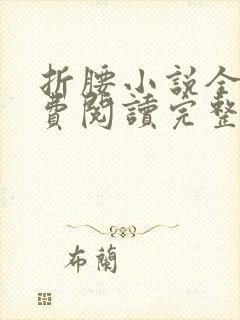 折腰小說全
費閱讀完整
布蘭